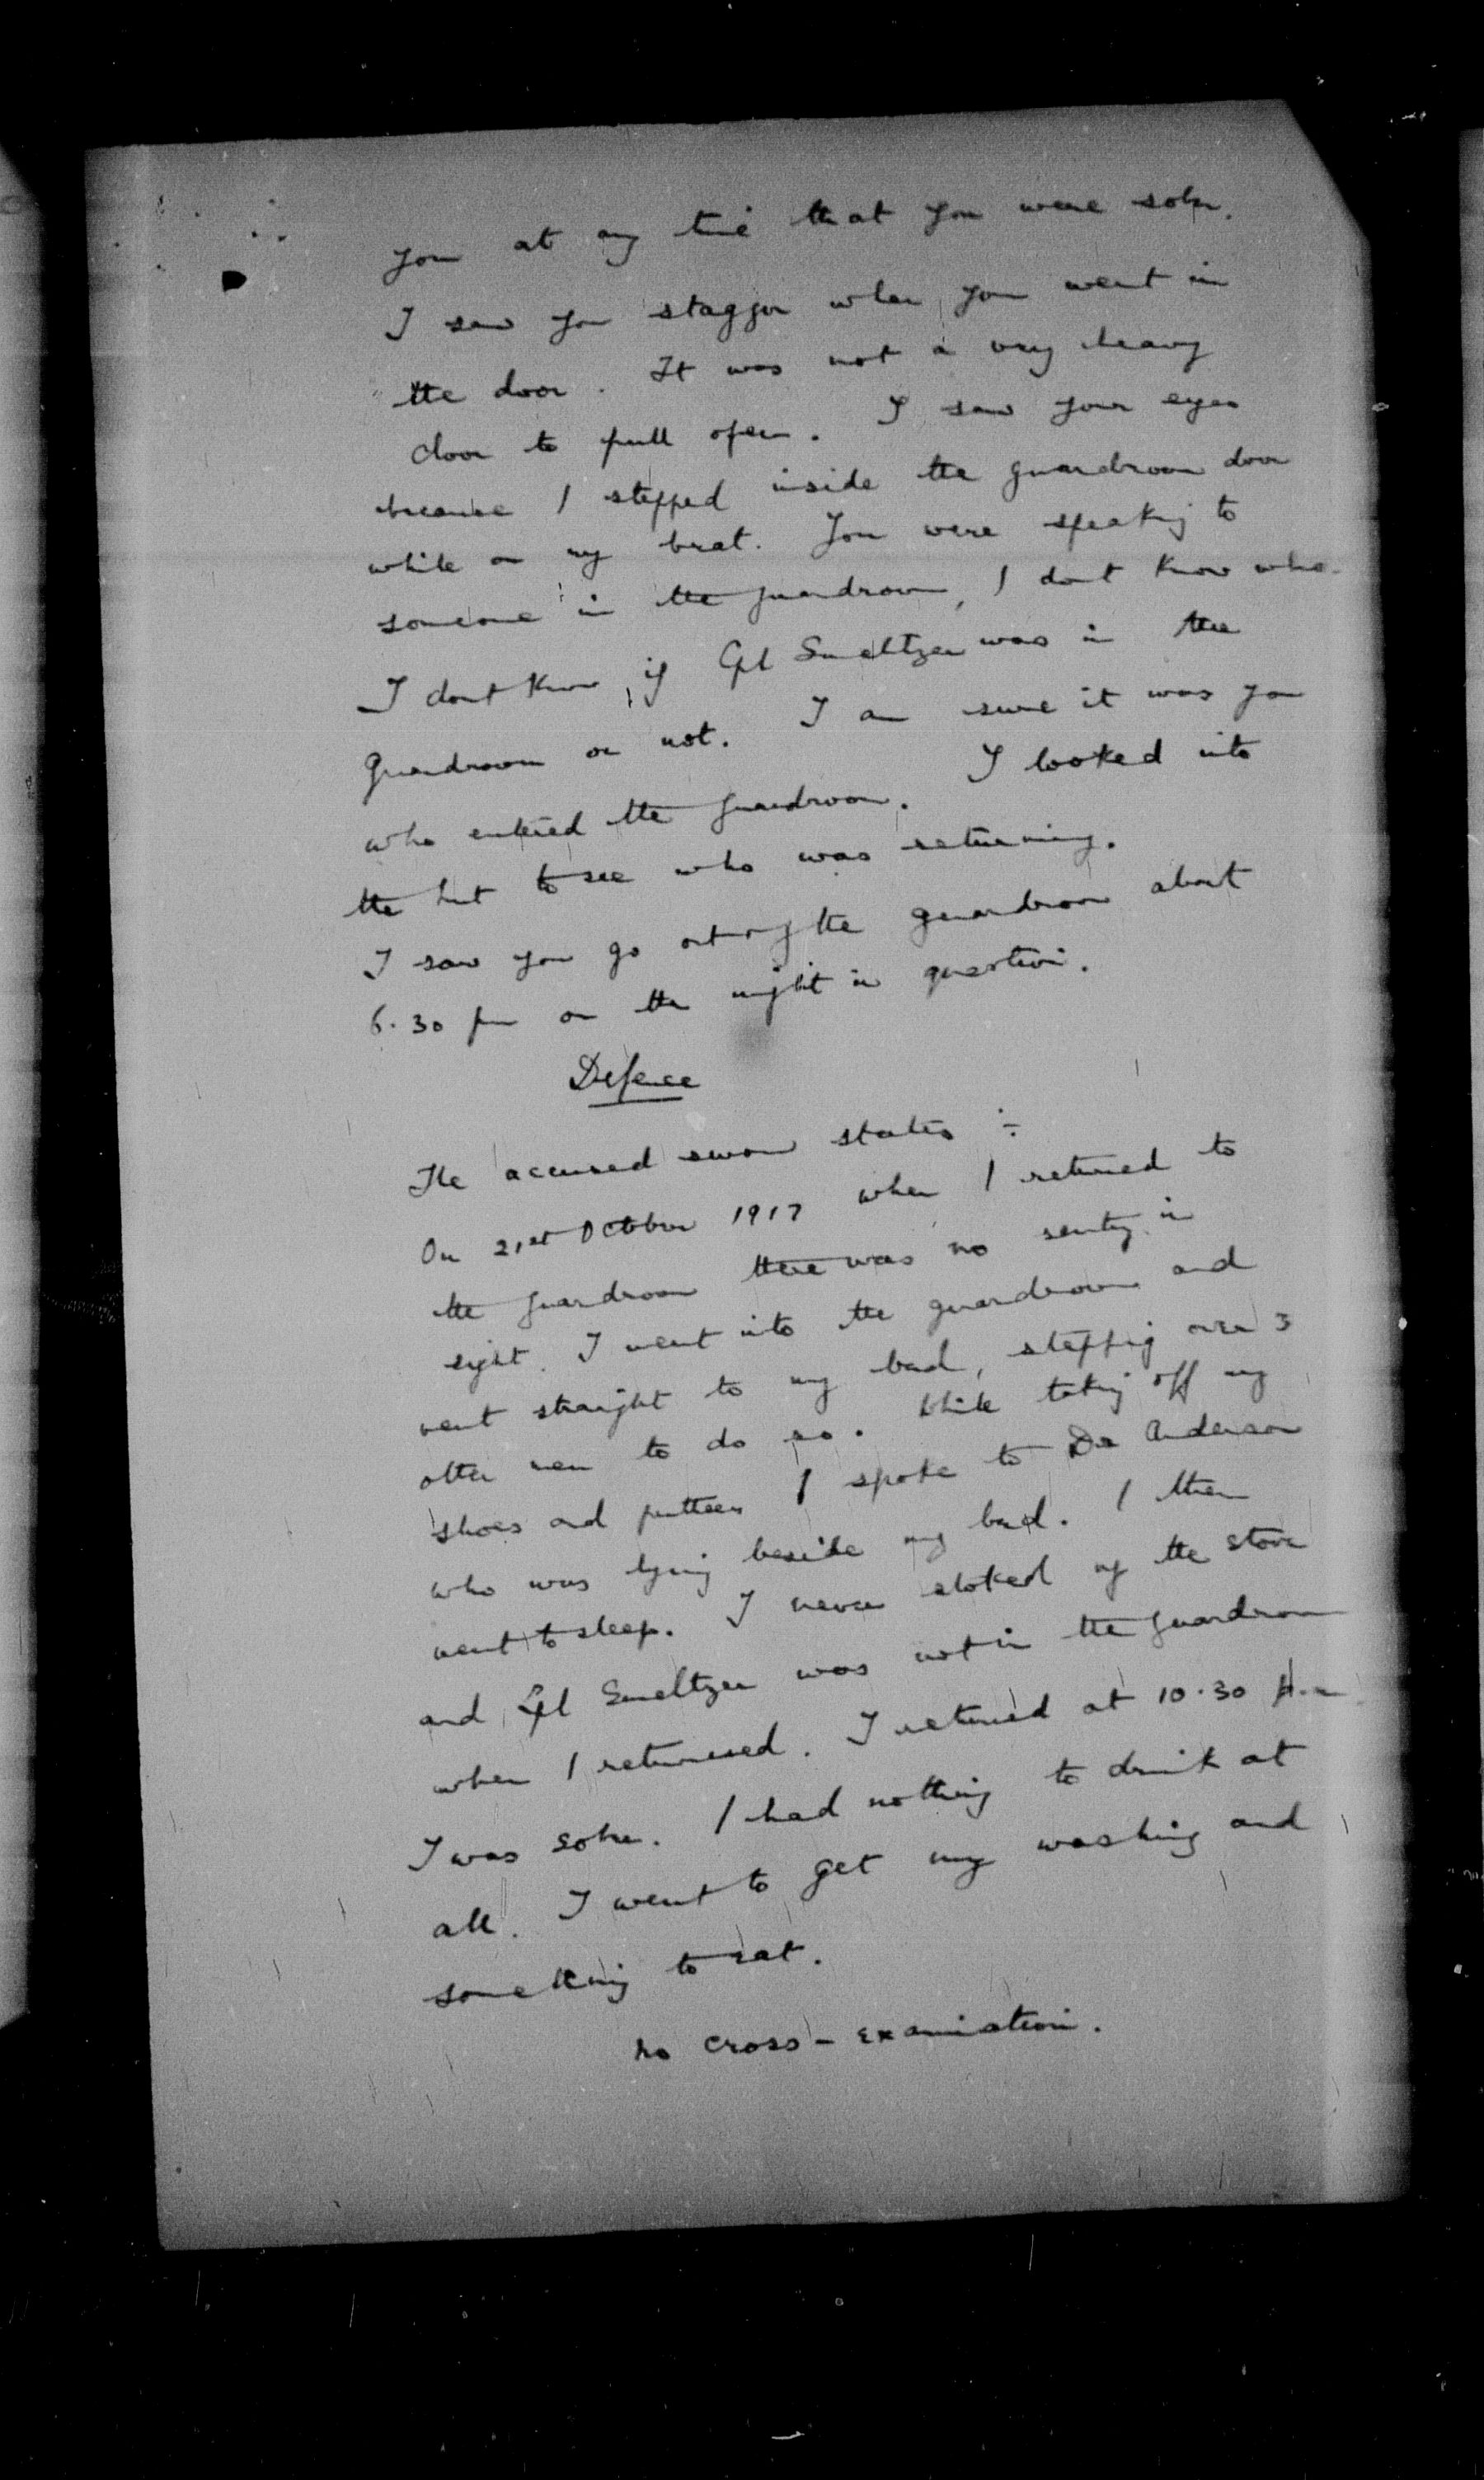 you at any time that you were sober.
I saw you stagger when you went in
the door. It was not a very heavy
door to pull open. I saw your eyes
because I stepped inside the guardroom door
while on my beat. You were speaking to
someone in the guardroom, I dont know who.
I dont know if Cpl Smeltzer was in the
Guardroom or not. I am sure it was you
who entered the guardroom. I looked into
the hut to see who was returning.
I saw you go out of the guardroom about
6.30 pm on the night in question.
Defence
The accused sworn states :-
On 21st October 1917 when I returned to
the guardroom there was no sentry in
sight. I went into the guardroom and
went straight to my bed, stepping over 3
other men to do so. While taking off my
shoes and puttees I spoke to Dr Anderson
who was lying beside my bed. I then
went to sleep. I never stoked up the stove
and Cpl Smeltzer was not in the guardroom
when I returned. I returned at 10.30 p.m.
I was sober. I had nothing to drink at
all. I went to get my washing and
something to eat.
No cross-examination.